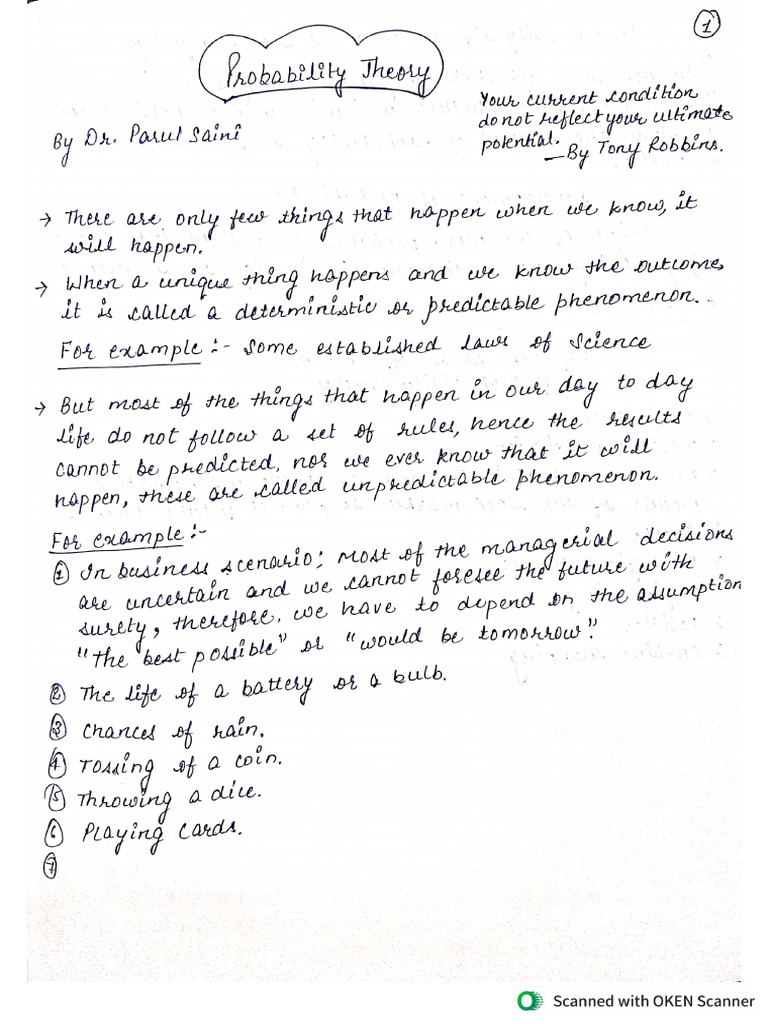 1
Probability Theory
Your current condition
do not reflect your ultimate
potential.
—By Tony Robbins.
By Dr. Parul Saini
→ There are only few things that happen when we know, it
will happen.
→ When a unique thing happens and we know the outcome,
it is called a deterministic or predictable phenomenon..
For example :- Some established laws of Science
→ But most of the things that happen in our day to day
life do not follow a set of rules, hence the results
cannot be predicted, nor we ever know that it will
happen, these are called unpredictable phenomenon.
For example :-
1 In business scenario: Most of the managerial decisions
are uncertain and we cannot foresee the future with
surety, therefore, we have to depend on the assumption
"the best possible" or "would be tomorrow".
2 The life of a battery or a bulb.
3 Chances of rain.
4 Tossing of a coin.
5 Throwing a dice.
6 Playing cards.
7
Scanned with OKEN Scanner